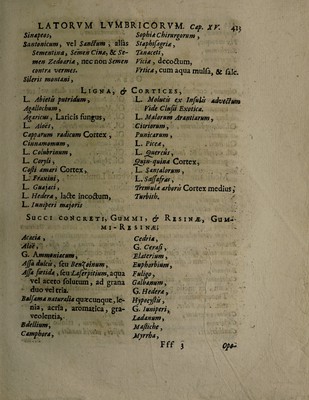 LATORVM LVMBRICORVM. Cap. XV. 413
Sinapeos,
Santonicum, vel Sanctum, aliàs
Sementina, Semen Cinæ, & Se-
men Zedoariæ, nec non Semen
contra vermes.
Sileris montani,
Sophiæ Chirurgorum,
Staphisagriæ,
Tanaceti,
Viciæ, decoctum,
Vrticæ, cum aqua mulsa, & sale.
LIGNA, & CORTICES,
L. Abietis putridum,
Agallochum,
Agaricus, Laricis fungus,
L. Aloës,
Capparum radicum Cortex,
Cinnamomum,
L. Colubrinum,
L. Coryli,
Costi amari Cortex,
L. Fraxini,
L. Guajaci,
L. Hederæ, lacte incoctum,
L. Juniperi majoris
L. Molucis ex Insulis advectum
Vide Clusii Exotica.
L. Malorum Arantiarum,
Citriorum,
Punicarum,
L. Piceæ,
L. Quercus,
Quin-quina Cortex
L. Santalorum,
L. Sassafras,
Tremulæ arboris Cortex medius,
Turbith.
SUCCI CONCRETI, GUMMI, & RESINÆ, GUM-
MI-RESINÆ;
Acacia,
Aloë,
G. Ammoniacum,
Assa dulcis, seu Benzoinum,
Assa fœtida, seu Laserpitium, aqua
vel aceto solutum, ad grana
duo vel tria.
Balsama naturalia quæcunque, le-
nia, acria, aromatica, gra-
veolentia,
Bdellium,
Camphora,
Cedria,
G. Cerasi,
Elaterium,
Euphorbium,
Fuligo,
Galbanum,
G. Hederæ,
Hypocystis,
G. Juniperi,
Ladanum,
Mastiche,
Myrrha,
Fff 3 Opo-